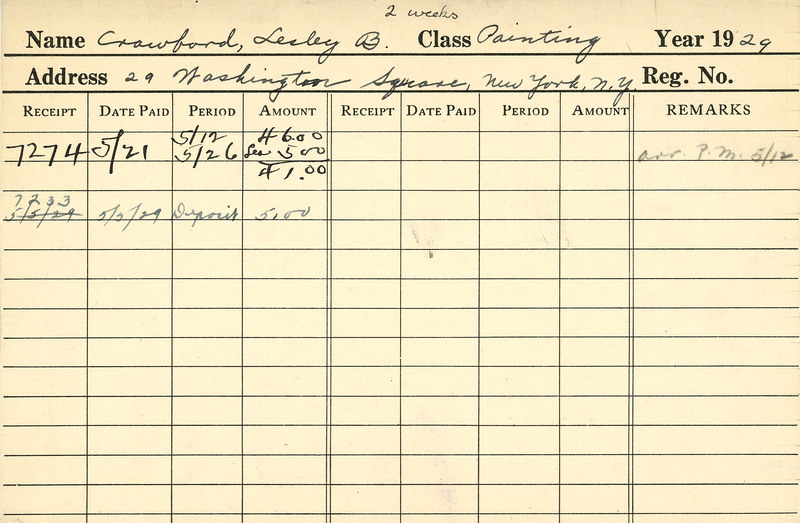 2 weeks
Name Crawford, Lesley B. Class Painting Year 1929
Address 29 Washington Square, New York, N.Y. Reg. No.
RECEIPT DATE PAID PERIOD AMOUNT RECEIPT DATE PAID PERIOD AMOUNT REMARKS
5/12 46.00
7274 5/21 5/26 5.00 arr. P.M. 5/12
41.00
7233
5/5/29 5/5/29 Deposit 5.00